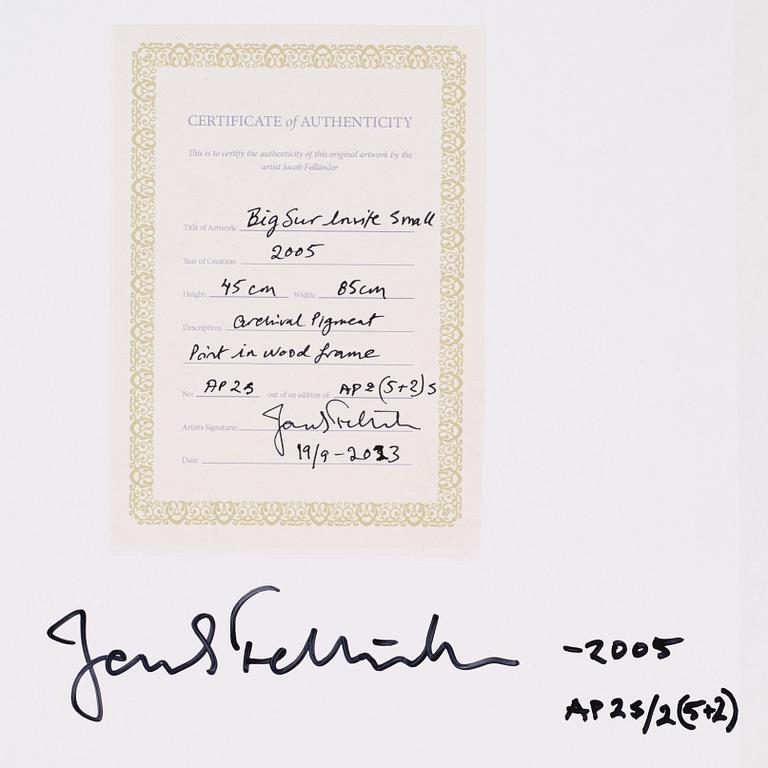 CERTIFICATE of AUTHENTICITY
This is to certify the authenticity of this original artwork by the
artist Jacob Felländer
Title of Artwork: Big Sur Invite Small
Year of Creation: 2005
Height: 45 cm Width: 85cm
Description: Archival Pigment
Print in wood frame
No: AP 2s out of an edition of: AP 2 (5+2) s
Artists Signature:
Date: 19/9-2023
-2005
AP 2s/2(5+2)